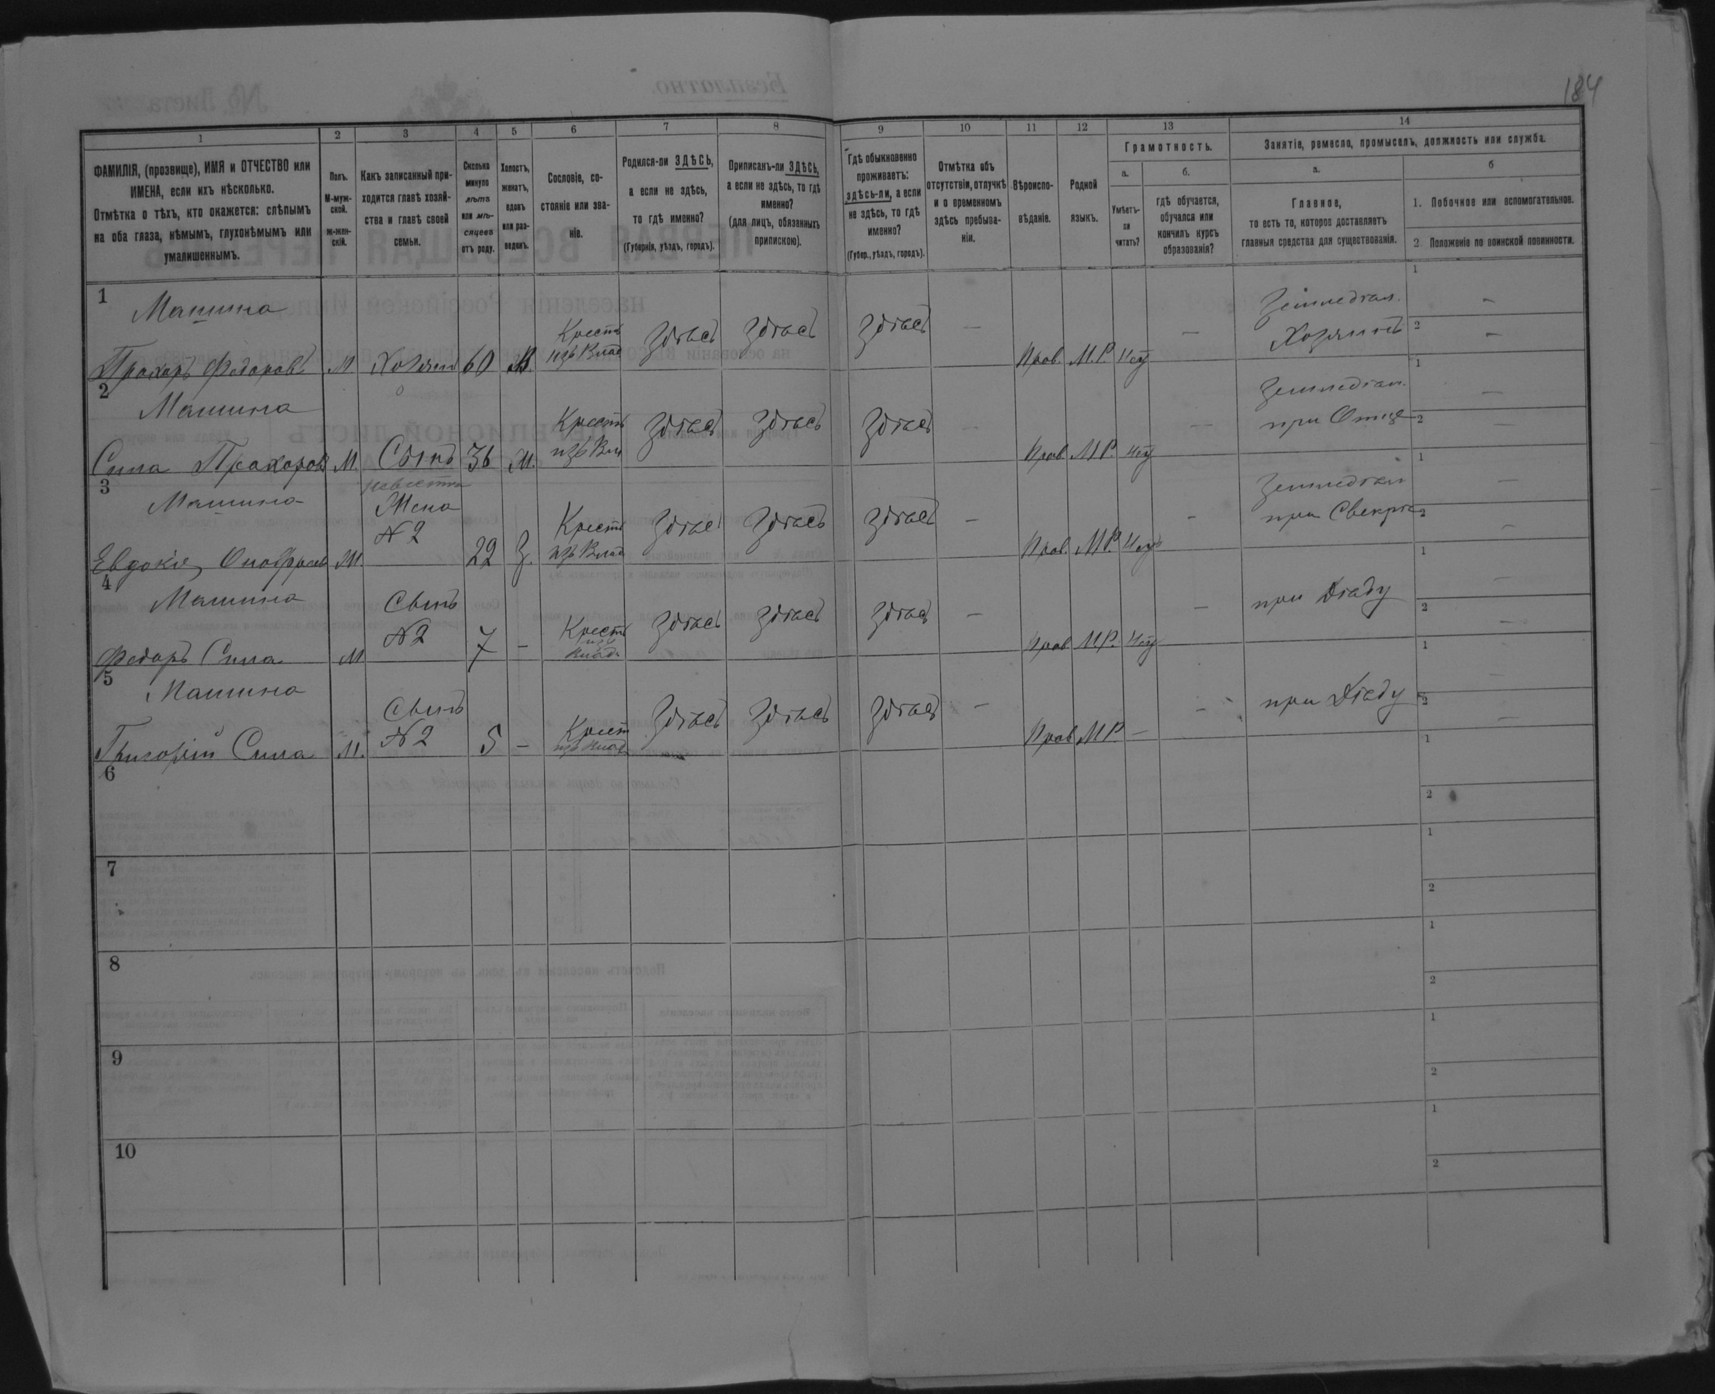 184
1 2 3 4 5 6 7 8 9 10 11 12 13 14
ФАМИЛІЯ, (прозвище), ИМЯ и ОТЧЕСТВО или
ИМЕНА, если ихъ нѣсколько.
Отмѣтка о тѣхъ, кто окажется: слѣпымъ
на оба глаза, нѣмымъ, глухонѣмымъ или
умалишеннымъ.
Полъ.
М-муж-
ской.
Ж-жен-
скій.
Какъ записанный при-
ходится главѣ хозяй-
ства и главѣ своей
семьи.
Сколько
минуло
лѣтъ
или мѣ-
сяцевъ
отъ роду.
Холостъ,
женатъ,
вдовъ
или раз-
веденъ.
Сословіе, со-
стояніе или зва-
ніе.
Родился-ли ЗДѢСЬ,
а если не здѣсь,
то гдѣ именно?
(Губернія, уѣздъ, городъ).
Приписанъ-ли ЗДѢСЬ,
а если не здѣсь, то гдѣ
именно?
(для лицъ, обязанныхъ
припискою).
Гдѣ обыкновенно
проживаетъ:
здѣсь-ли, а если
не здѣсь, то гдѣ
именно?
(Губер., уѣздъ, городъ).
Отмѣтка объ
отсутствіи, отлучкѣ
и о временномъ
здѣсь пребыва-
ніи.
Вѣроиспо-
вѣданіе.
Родной
языкъ.
Грамотность.
а.
Умѣетъ-
ли
читать?
б.
гдѣ обучается,
обучался или
кончилъ курсъ
образованія?
Занятіе, ремесло, промыселъ, должность или служба.
а.
Главное,
то есть то, которое доставляетъ
главныя средства для существованія.
б
1. Побочное или вспомогательное.
2. Положеніе по воинской повинности.
1
Машина
Прохоръ Федоровъ М Хозяин 60 В.
Крестъ
изъ Влад
Здѣсь Здѣсь Здѣсь — Прав. М.Р. нѣт —
Земледѣл.
Хозяинъ
1 —
2 —
2
Машина
Сила Прохоров М Сынъ 36 М.
Крестъ
изъ Вл
Здѣсь Здѣсь Здѣсь — Прав М.Р. нѣт —
Земледѣл.
при Отце
1 —
2 —
3
Машина
Евдокія М
невестка
Жена
№ 2
22 З.
Крестъ
изъ Влад
Здѣсь Здѣсь Здѣсь — Прав. М.Р. нѣт —
Земледѣл
при Свекре
1 —
2 —
4
Машина
Федоръ Сила М
Сынъ
№ 2
7 —
Крестъ
изъ
влад.
Здѣсь Здѣсь Здѣсь — Прав М.Р. нѣт —
при Дѣду
1 —
2 —
5
Машина
Григорій Сила М.
Сынъ
№ 2
5 —
Крест
изъ влад
Здѣсь Здѣсь Здѣсь — Прав М.Р. — —
при Дѣду
1 —
2 —
6
1
2
7
1
2
8
1
2
9
1
2
10
1
2